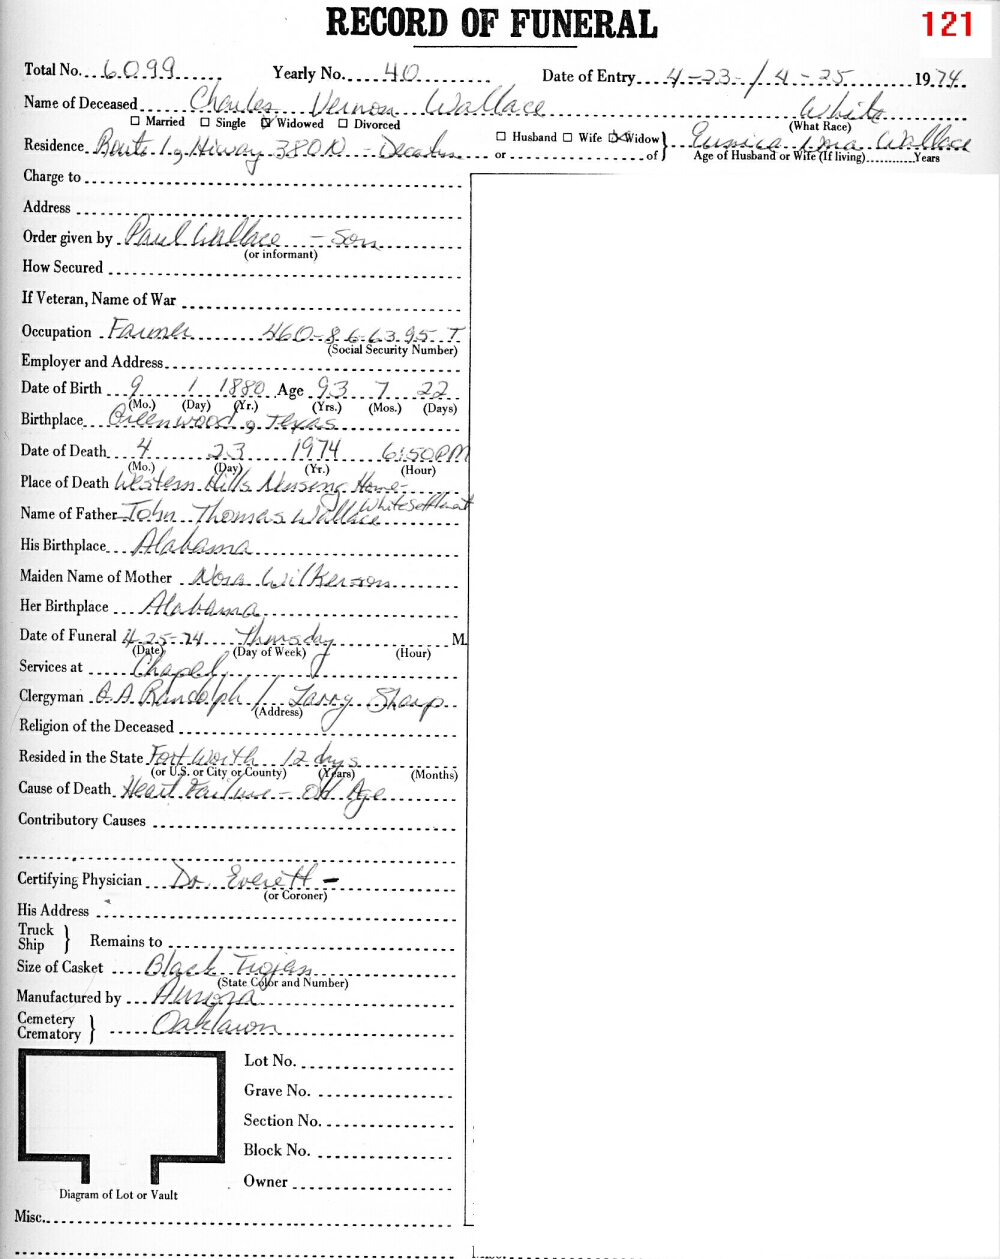 RECORD OF FUNERAL
121
Total No. 6099 Yearly No. 40 Date of Entry 4-23-/4-25 1974
Name of Deceased Charles Vernon Wallace White
☐ Married ☐ Single ☒ Widowed ☐ Divorced (What Race)
Residence Route 1, Hiway 380 W - Decatur ☐ Husband ☐ Wife ☒ Widow or of } Eunice Wallace
Age of Husband or Wife (If living) Years
Charge to
Address
Order given by Paul Wallace - Son
(or informant)
How Secured
If Veteran, Name of War
Occupation Farmer 460-86-6395-T
(Social Security Number)
Employer and Address
Date of Birth 9 1 1880 Age 93 7 22
(Mo.) (Day) (Yr.) (Yrs.) (Mos.) (Days)
Birthplace Greenwood, Texas
Date of Death 4 23 1974 6:50 PM
(Mo.) (Day) (Yr.) (Hour)
Place of Death Western Hills Nursing Home-
White Settlement
Name of Father John Thomas Wallace
His Birthplace Alabama
Maiden Name of Mother Nora Wilkerson
Her Birthplace Alabama
Date of Funeral 4-25-74 Thursday M.
(Date) (Day of Week) (Hour)
Services at Chapel
Clergyman A.A. Randolph / Larry Sharp
(Address)
Religion of the Deceased
Resided in the State Fort Worth 12 days
(or U.S. or City or County) (Years) (Months)
Cause of Death Heart Failure - Old Age
Contributory Causes
Certifying Physician Dr. Everett -
(or Coroner)
His Address
Truck
Ship } Remains to
Size of Casket Black Trojan
(State Color and Number)
Manufactured by Aurora
Cemetery
Crematory } Oaklawn
Lot No.
Grave No.
Section No.
Block No.
Owner
Diagram of Lot or Vault
Misc.